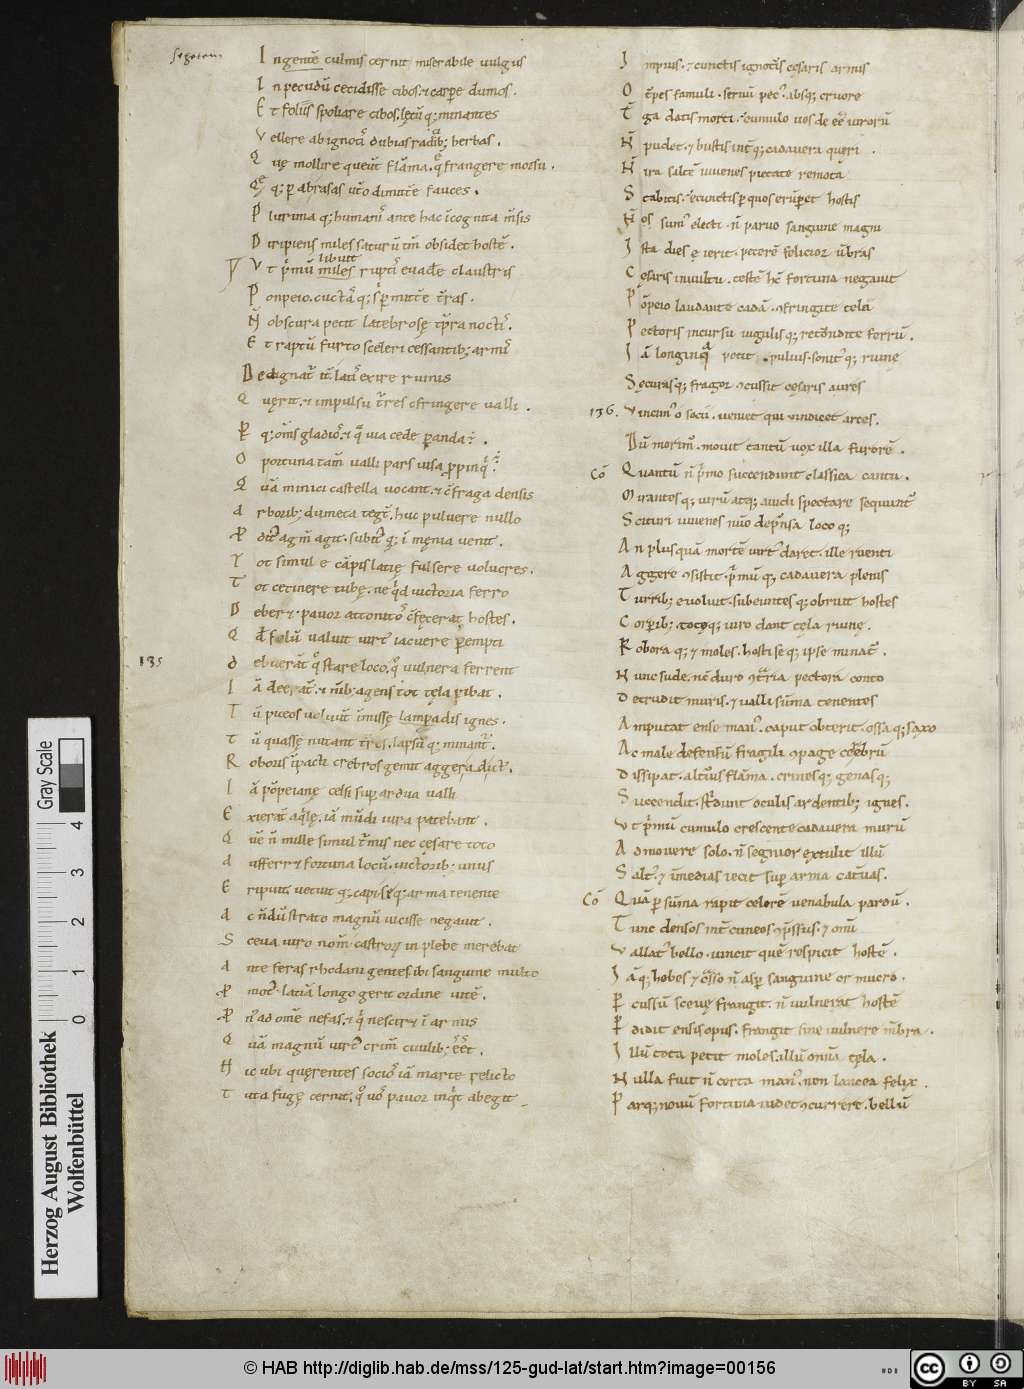 segetem
Ingentē culmis cernit miserabile uulgus
In pecudū cecidisse cibos. et carpe dumos.
Et foliis spoliare cibos. lętū q; minantes
Vellere ab ignotis dubias radib; herbas.
Quę mollire queūt flāma. quę frangere morsu.
Quęq; p abrasas utero dimittere fauces.
Plurima q; humanis ante hac incognita mensis
Diripiens miles saturū tm̄ obsidet hostē.
libuit
Vt p̄mū miles ruptis euade claustris
Ponpeio. cuctas q; s̄ permittere t̄ras.
Nō obscura petit latebrosę tp̄ra noctis.
Et raptū furto sceleri cessantib; armis
Dedignat̄ it̄. latis exire ruinis
Quęrit. et impulsu t̄res cfringere ualli.
Pq; om̄s gladios. et qua uia cede panda ē.
Oportuna tam̄ ualli pars uisa ppinqui ē
Quā minici castella uocant. et cfraga densis
Arborib; dumeta tegt̄. huc puluere nullo
Pditus agm̄ agit. subitus q; ī męnia uenit.
Tot simul e cāpis latię fulsere uolucres.
Tot cecinere tubę. ne quid uictoria ferro
Deberet. pauor attonitos cfecerat hostes.
Qd solū ualuit uirtus iacuere pempti
135
debuerāt quo stare loco. qui uulnera ferrent
Iā deerāt. et nīb; agens tot tęla pibat.
Tū piceos uoluūt immissę lampadis ignes.
tū quassę nutant t̄res. lapsū q; minant̄.
Roboris ipacti crebros gemit aggera ictus.
Iā pōpeianę celsi sup ardua ualli
Exierāt aq̇lę. iā mūdi iura patebant.
Quē n̄ mille simul t̄mis nec cesare toto
aufferret fortuna locū. uictorib; unus
Eripuit. uetuit q; capi seq; arma tenente
ac nōdū strato magnū uicisse negauit.
Sceua uiro nom̄. castrorꝝ in plebe merebat
Ante feras rhodani gentes. ibi sanguine multo
Pmotus. latiā longo gerit ordine uitē.
Pnus ad om̄e nefas. et qui nesciret ī armis
Quā magnū uirtus crim̄ ciuilib; eēt.
Hic ubi quęrentes socios iā marte relicto
Tuta fugę cernit. quo uos pauor inquit abegit
Impius. et cunctis ignotus cesaris armis
O t̄pes famuli. seruū pecus. absq; cruore
Tga datis morti. cumulo uos deeē uirorū
Nō pudet. et bustis int̄q; cadauera queri.
Nō ira saltē iuuenes pietate remota
Stabitis. e cūctis p quos erūpet hostis
Nos sumus electi. n̄ paruo sanguine magni
Ista dies e ierit. peterē felicior ūbras
Cęsaris inuultu. testē hc̄ fortuna negauit
Pōpeio laudante cadā. cfringite tela
Pectoris incursu iugulis q; retundite ferrū.
Iā longinqua petit puluis. sonitus q; ruinę
Sęcuras q; fragor ccussit cęsaris aures
136.
Vincimus o socii. ueniet qui uindicet arces.
Dū morimur. mouit tantū uox illa furorē.
Cō
Quantū n̄ p̄mo succendunt classica cantu.
Mirantes q; uirū atq; auidi spectare sequuntur
Scituri iuuenes num̄o deprensa loco q;
An plusquā mortē uirtus daret. ille ruenti
Aggere csistit. p̄mū q; cadauera plenis
Turrib; euoluit. subeuntes q; obruit hostes
Corporib;. totę q; uiro dant tęla ruinę.
Robora q; et moles. hosti se q; ipse minatur.
Nunc sude. nc̄ duro ctraria pectora conto
Detrudit muris. et ualli sūma tenentes
Amputat ense manus. caput obterit. ossa q; saxo
Ac male defensū fragili cpage cerebrū
Dissipat. alterius flāma. crines q; genas q;
Succendit. stridunt oculis ardentib; ignes.
Vt p̄mū cumulo crescente cadauera murū
Admouere solo. n̄ segnior extulit illū
Saltus. et in medias iecit sup arma cateruas.
Cō
Quā p sūma rapit celerē uenabula pardū.
Tunc densos int̄ cuneos cp̄ssus. et omi
Vallatus bello. uincit quē respicit hostē.
Iā q; hebes et crasso n̄ asp sanguine est mucro.
Pcussū sceuę frangit. n̄ uulnerat hostē
Pdidit ensis opus. frangit sine uulnere mēbra.
Illū tota petit moles. illū omia tela.
Nulla fuit n̄ certa manus. non lancea felix.
Parq; nouū fortuna uidet ccurrere. bellū
Gray Scale
4
3
2
1
0
Herzog August Bibliothek
Wolfenbüttel
© HAB http://diglib.hab.de/mss/125-gud-lat/start.htm?image=00156
cc BY SA